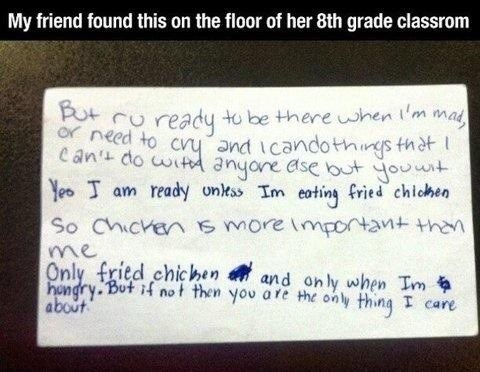 My friend found this on the floor of her 8th grade classrom
But r u ready to be there when I'm mad,
or need to cry and i can do things that I
can't do with anyone else but you wit
Yes I am ready unless Im eating fried chicken
So Chicken is more important than
me
Only fried chicken and only when Im
hungry. But if not then you are the only thing I care
about.